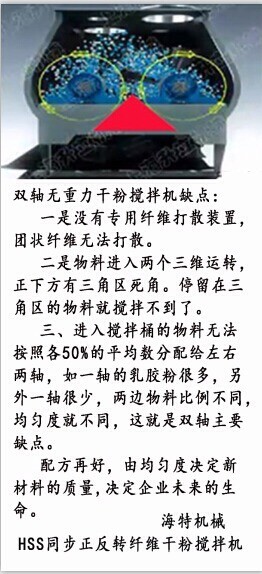 双轴无重力干粉搅拌机缺点：
一是没有专用纤维打散装置，
团状纤维无法打散。
二是物料进入两个三维运转，
正下方有三角区死角。停留在三
角区的物料就搅拌不到了。
三、进入搅拌桶的物料无法
按照各50%的平均数分配给左右
两轴，如一轴的乳胶粉很多，另
外一轴很少，两边物料比例不同，
均匀度就不同，这就是双轴主要
缺点。
配方再好，由均匀度决定新
材料的质量，决定企业未来的生
命。
海特机械
HSS同步正反转纤维干粉搅拌机